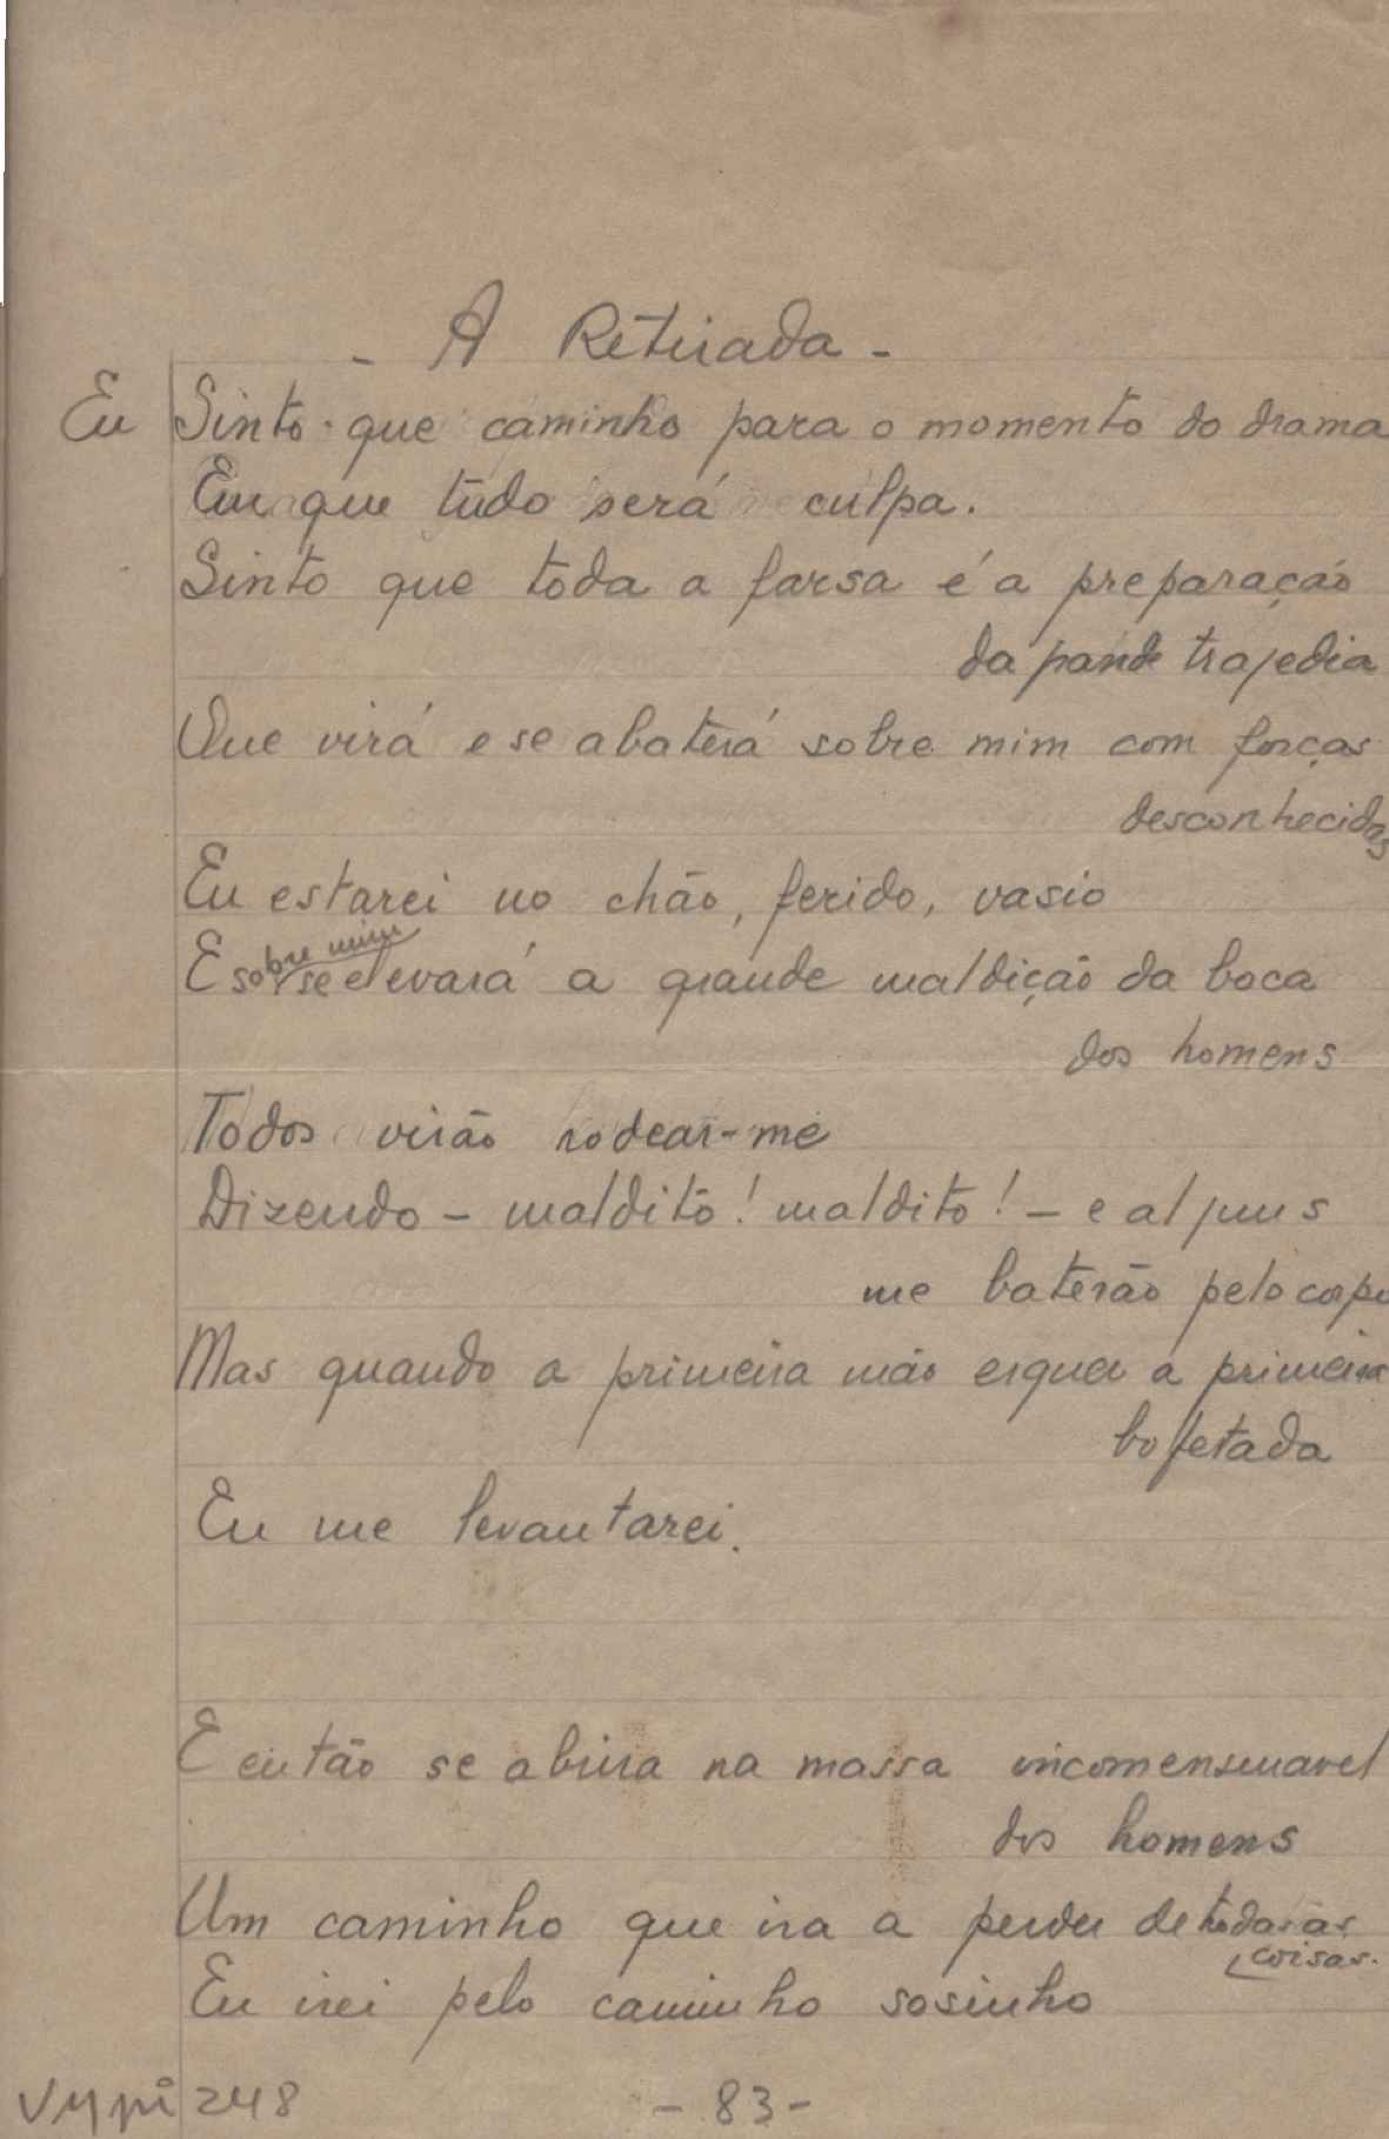 - A Retirada -
Eu Sinto que caminho para o momento do drama
Em que tudo será culpa.
Sinto que toda a farsa é a preparação
da grande trajedia
Que virá e se abaterá sobre mim com forças
desconhecidas
Eu estarei no chão, ferido, vasio
sobre mim
E se elevará a grande maldição da boca
dos homens
Todos virão rodear-me
Dizendo - maldito! maldito! - e alguns
me baterão pelo corpo
Mas quando a primeira mão erguer a primeira
bofetada
Eu me levantarei.
E então se abrira na massa incomensuravel
dos homens
Um caminho que ira a perder de todas as
coisas.
Eu irei pelo caminho sosinho
VMpi 248
- 83 -